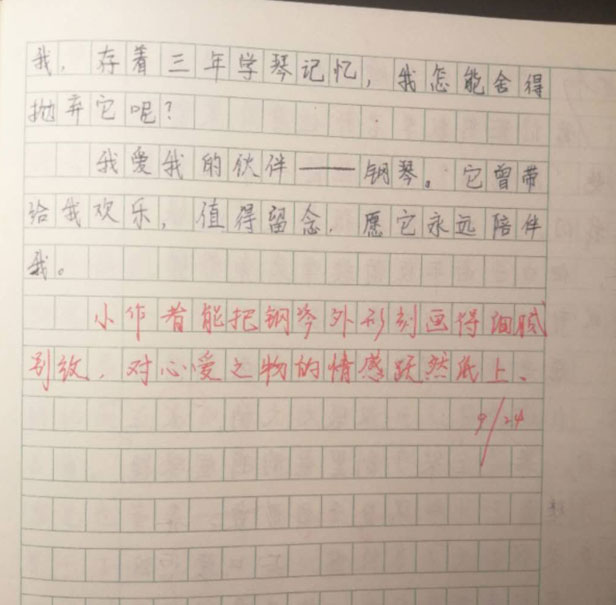 我，存着三年学琴记忆，我怎能舍得
抛弃它呢？
我爱我的伙伴——钢琴。它曾带
给我欢乐，值得留念，愿它永远陪伴
我。
小作者能把钢琴外形刻画得细腻
别致，对心爱之物的情感跃然纸上、
9/24